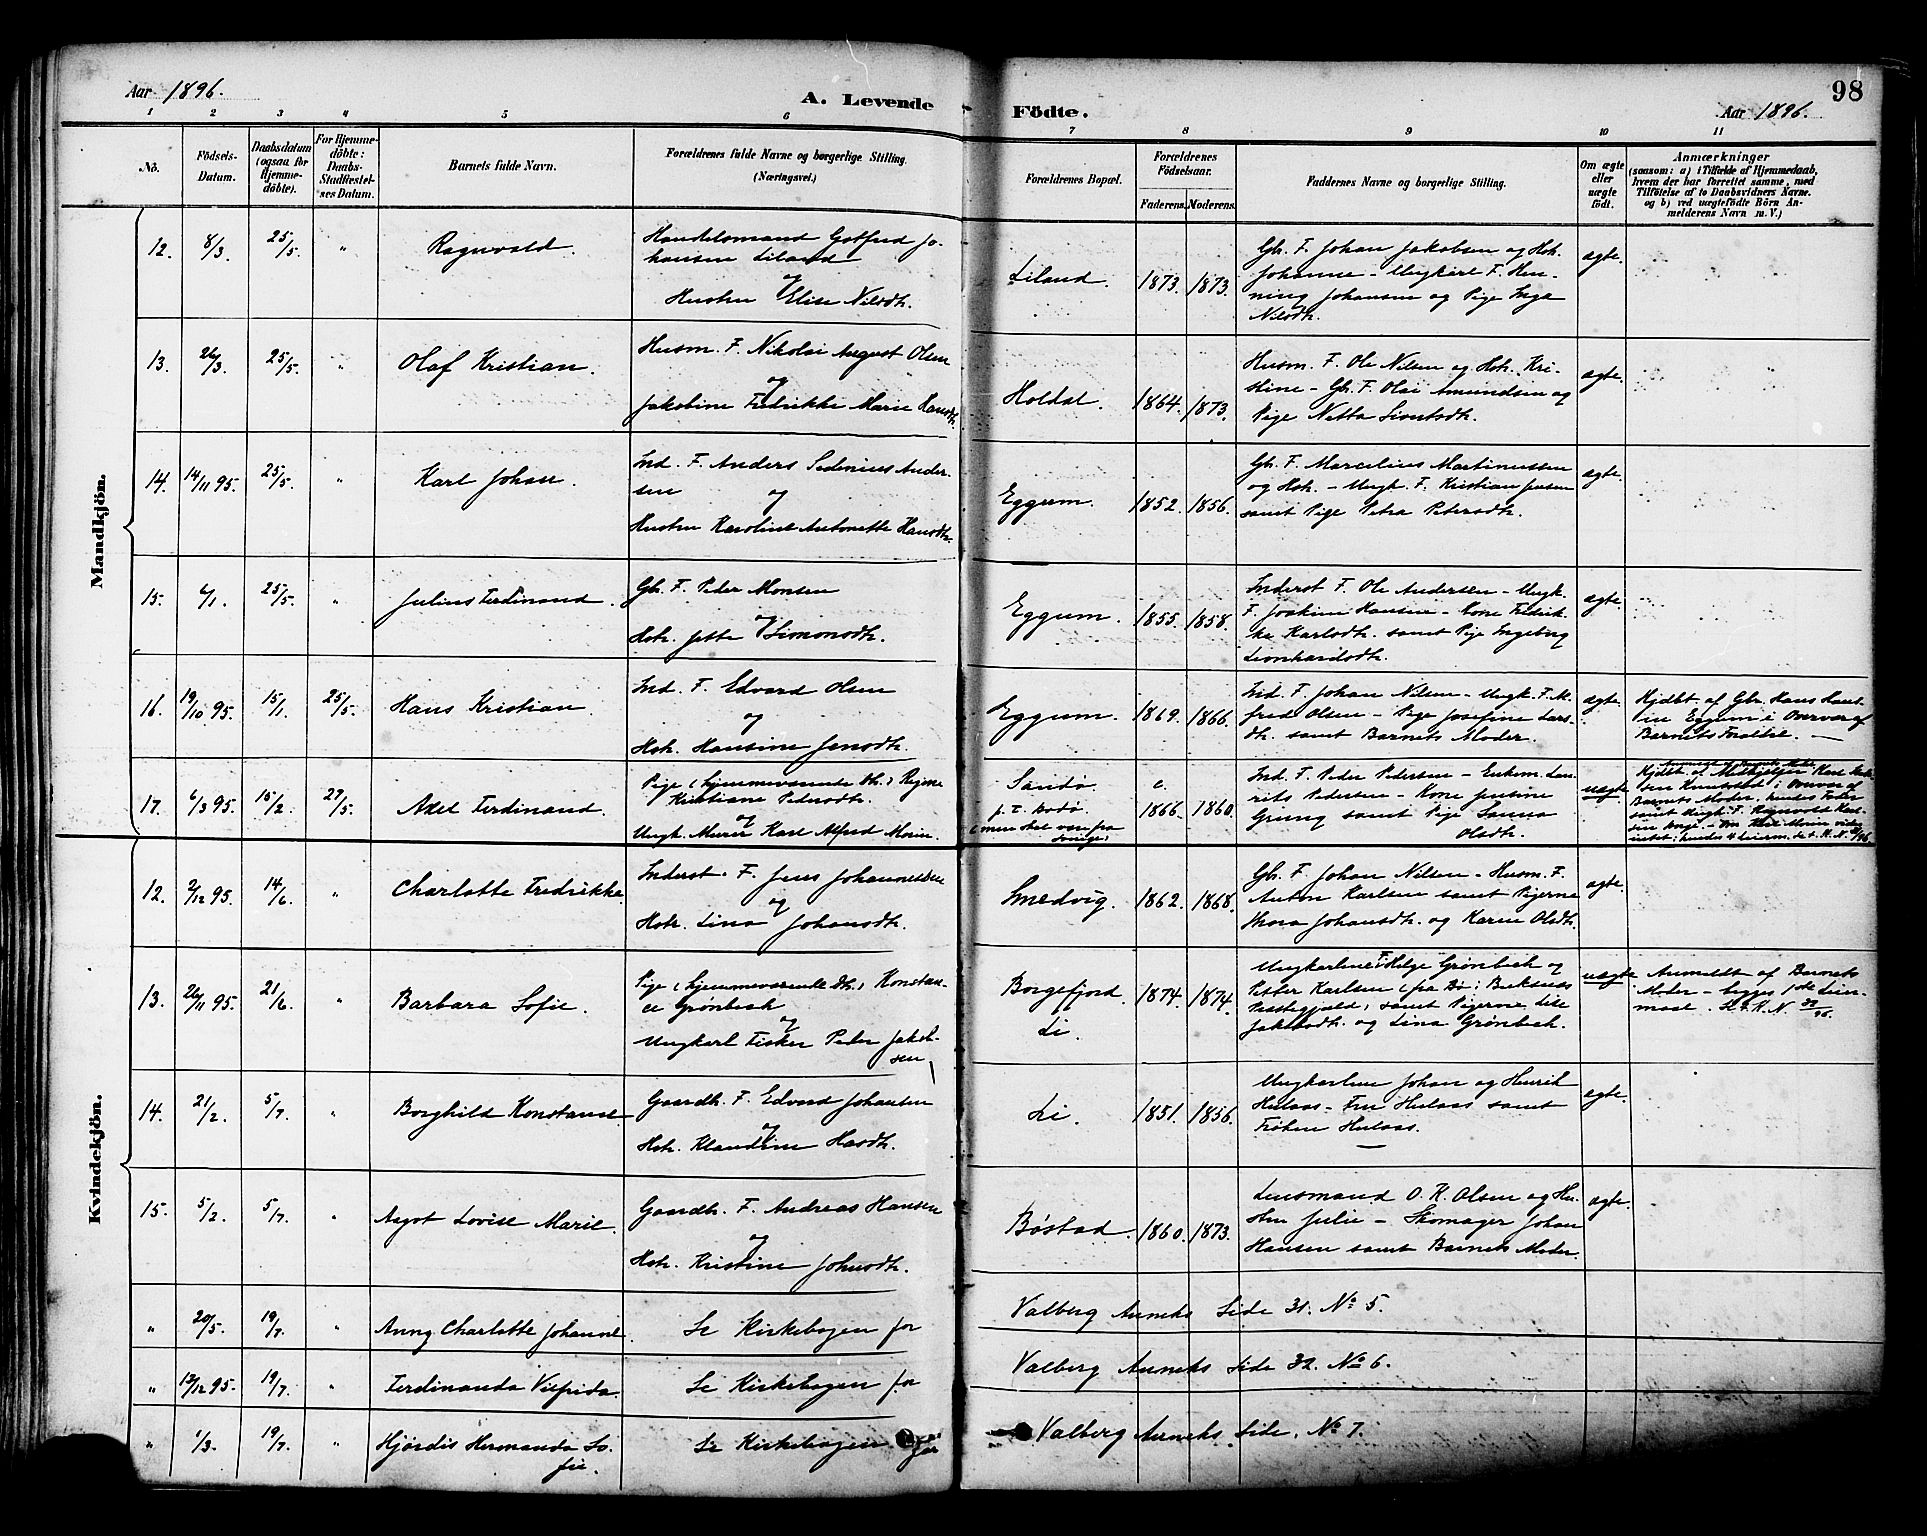 98
Aar 1896.
A. Levende
Födte.
Aar 1896.
1 2 3 4 5 6 7 8 9 10 11
No.
Födsels-
Datum.
Daabsdatum
(ogsaa for
Hjemme-
döbte).
For Hjemme-
döbte:
Daabs-
Stadfæstel-
ses Datum.
Barnets fulde Navn.
Forældrenes fulde Navne og borgerlige Stilling.
(Næringsvei.)
Forældrenes Bopæl.
Forældrenes
Födselsaar.
Faderens. Moderens.
Faddernes Navne og borgerlige Stilling.
Om ægte
eller
uægte
födt.
Anmærkninger
(saasom: a) i Tilfælde af Hjemmedaab,
hvem der har forrettet samme, med
Tilföielse af to Daabsvidners Navne.
og b) ved uægtefödte Börn An-
melderens Navn m. V.)
Mandkjön.
12. 8/3. 25/5. " Ragnvald.
Handelsmand Gotfred Jo-
hansen Liland
og
Hustru Elise Nilsdtr.
Liland. 1873. 1873.
Gbr. F. Johan Jakobsen og Hstr.
Johanne – Ungkarl F. Hen-
ning Johansen og Pige Inga
Nilsdtr.
ægte.
13. 26/3. 25/5. " Olaf Kristian.
Husm. F. Nikolai August Olsen
og
Jakobine Fredrikke Marie Hansdtr.
Holdal. 1864. 1873.
Husm. F. Ole Nilsen og Hstr. Kri-
stine – Gbr. F. Olai Amundsen og
Pige Netta Sivertsdtr.
ægte.
14. 14/11 95. 25/5. " Karl Johan.
Ind. F. Anders Sedenius Ander-
sen
og
Hustru Karoline Antonette Hansdtr.
Eggum. 1852. 1856.
Gbr. F. Marcelius Martinussen
og Hstr. – Ungk. F. Kristian Jensen
samt Pige Petra Petersdtr.
ægte.
15. 6/1. 25/5. " Julius Ferdinand.
Gbr. F. Peder Monsen
og
Hstr. Jette Simonsdtr.
Eggum. 1855. 1858.
Inderst F. Ole Andersen – Ungk.
F. Joakim Hansen – Kone Fredrik-
ke Karlsdtr. samt Pige Ingeborg
Leonhardsdtr.
ægte.
16. 19/10 95. 15/1. 25/5. Hans Kristian.
Ind. F. Edvard Olsen
og
Hstr. Hansine Jensdtr.
Eggum. 1869. 1866.
Ind. F. Johan Nilsen – Ungk. F. Al-
fred Olsen – Pige Josefine Lars-
dtr. samt Barnets Moder.
ægte.
Hjdbt. af Gbr. Hans Hans-
sen Eggum i Overvær af
Barnets Forældre.
17. 6/3 95. 15/2. 27/5. Axel Ferdinand.
Pige (hjemmeværende Dtr.) Regine
Kristiane Pedersdtr.
og
Ungk. Murer Karl Alfred Morin.
Sandø
p. T. Bodø
(men skal være fra
Sverige)
c.
1866. 1860.
Ind. F. Peder Pedersen – Enkem. Lau-
rits Pedersen – Kone Justine
Grung samt Pige Sanna
Olsdtr.
uægte.
Barnets Moder
Kvindekjön.
12. 2/12 95. 14/6. " Charlotte Fredrikke
Inderst. F. Jens Johannessen
og
Hstr. Lina Johansdtr.
Smedvig. 1862. 1868.
Gbr. F. Johan Nilsen – Husm. F.
Anton Karlsen samt Pigerne
Thora Johansdtr. og Karen Olsdtr.
ægte.
13. 26/11 95. 21/6. " Barbara Sofie.
Pige (hjemmeværende Dtr.) Konstan-
ce Grønbech
og
Ungkarl Fisker Peder Jakob-
sen
Borgefjord.
Li.
1874. 1874.
Ungkarlene F. Helge Grønbech og
Petter Karlsen (fra Bø i Buksnes
Præstegjæld) samt Pigerne Lise
Jakobsdtr. og Lina Grønbech.
uægte
Anmeldt af Barnets
Moder – begges 1ste Leier-
maal.
14. 21/2. 5/7. " Borghild Konstance
Gaardbr. F. Edvard Johansen
og
Hstr. Klaudine Hansdtr.
Li. 1851. 1856.
Ungkarlene Johan og Henrik
Hulaas – Fru Hulaas samt
Frøken Hulaas.
ægte.
15. 5/2. 5/7. " Aagot Lovise Marie.
Gaardbr. F. Andreas Hansen
og
Hstr. Kristine Johnsdtr.
Bøstad. 1860. 1873.
Lensmand O. K. Olsen og Hu-
stru Julie – Skomager Johan
Hansen samt Barnets Moder.
ægte.
" 20/5. 19/7. " Anny Charlotte Johanne.
Se Kirkebogen for
Valberg Anneks Side 31. No 5.
" 13/12 95. 19/7. " Ferdinanda Vilfrida.
Se Kirkebogen for
Valberg Anneks Side 32. No 6.
" 1/3. 19/7. " Hjørdis Hermanda So-
fie.
Se Kirkebogen for
Valberg Anneks Side. No 7.